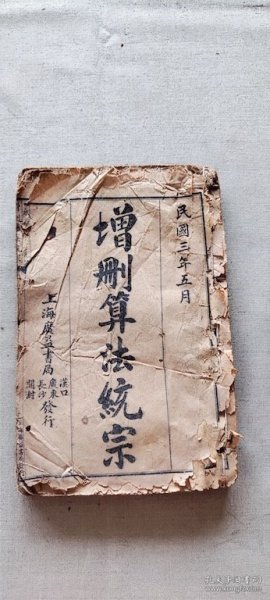 民國三年五月
增刪算法統宗
上海廣益書局
漢口
廣東
長沙
開封
發行